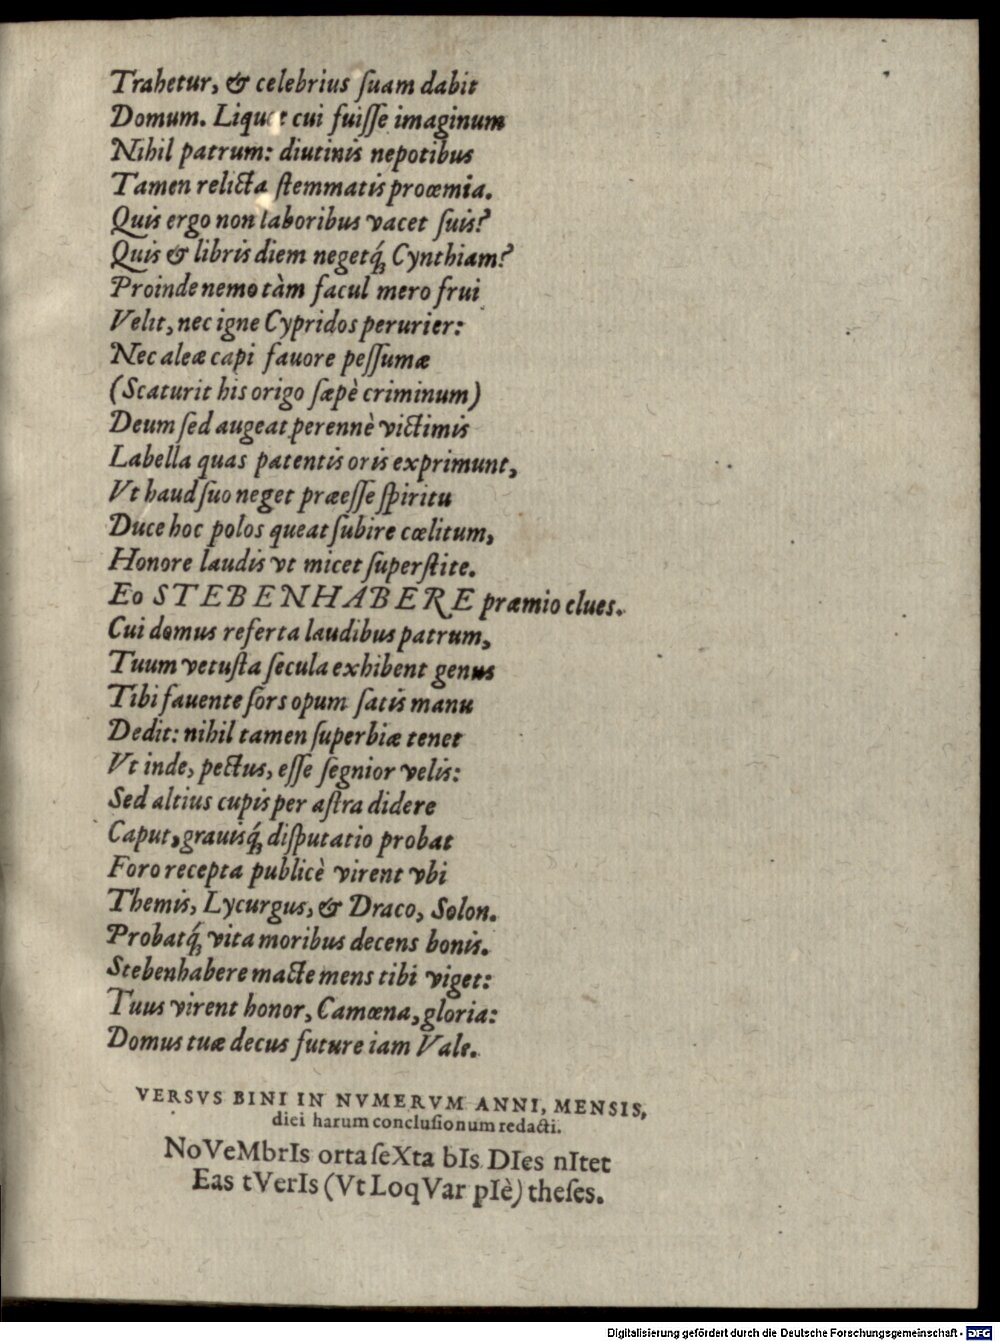 Trahetur, & celebrius ſuam dabit
Domum. Liquet cui fuiſſe imaginum
Nihil patrum: diutinis nepotibus
Tamen relicta ſtemmatis proœmia.
Quis ergo non laboribus vacet ſuis?
Quis & libris diem negetq́; Cynthiam?
Proinde nemo tàm facul mero frui
Velit, nec igne Cypridos perurier:
Nec aleæ capi fauore peſſumæ
(Scaturit his origo ſæpè criminum)
Deum ſed augeat perennè victimis
Labella quas patentis oris exprimunt,
Vt haud ſuo neget præeſſe ſpiritu
Duce hoc polos queat ſubire cœlitum,
Honore laudis vt micet ſuperſtite.
Eo STEBENHABERE præmio clues.
Cui domus referta laudibus patrum,
Tuum vetuſta ſecula exhibent genus
Tibi fauente ſors opum ſatis manu
Dedit: nihil tamen ſuperbiæ tenet
Vt inde, pectus, eſſe ſegnior velis:
Sed altius cupis per aſtra didere
Caput, grauisq́; diſputatio probat
Foro recepta publicè virent vbi
Themis, Lycurgus, & Draco, Solon.
Probatq́; vita moribus decens bonis.
Stebenhabere macte mens tibi viget:
Tuus virent honor, Camœna, gloria:
Domus tuæ decus future iam Vale.
VERSVS BINI IN NVMERVM ANNI, MENSIS,
diei harum concluſionum redacti.
NoVeMbrIs orta ſeXta bIs DIes nItet
Eas tVerIs (Vt LoqVar pIè) theſes.
Digitalisierung gefördert durch die Deutsche Forschungsgemeinschaft - DFG